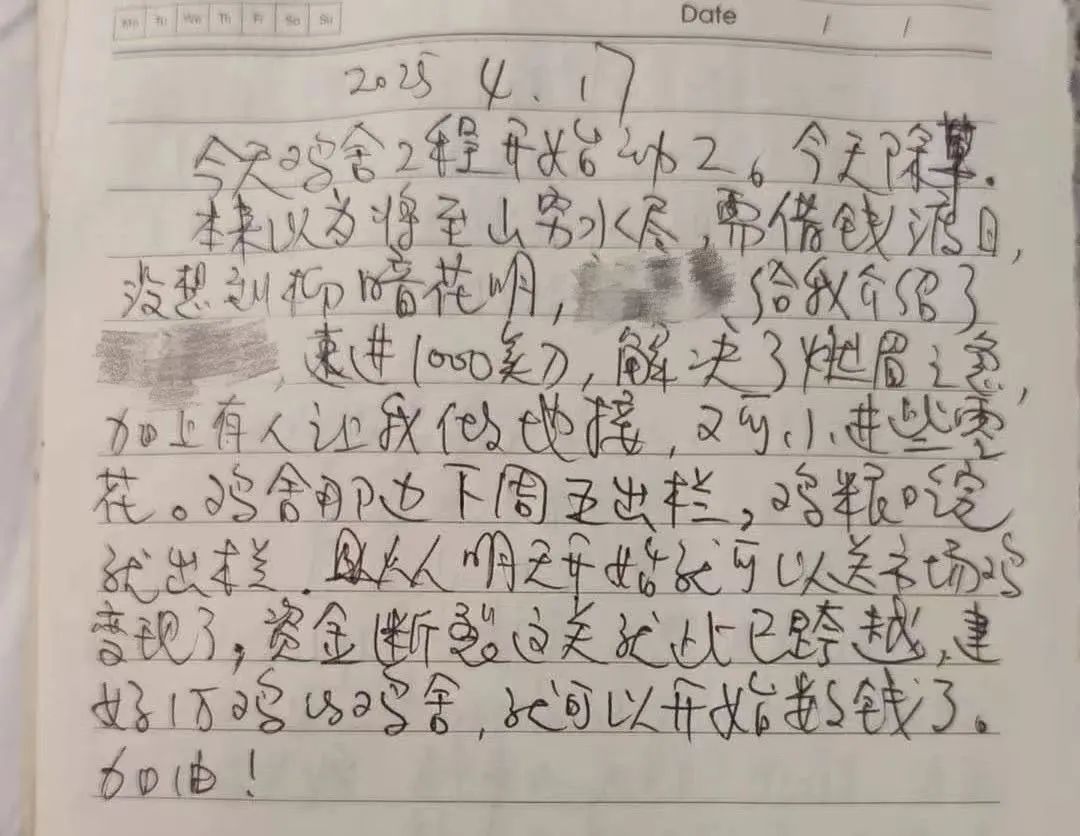 Mo Tu We Th Fr Sa Su
Date / /
2025 4.17
今天鸡舍工程开始动工。今天除草.
本来以为将至山穷水尽,需借钱渡日,
没想到柳暗花明, 给我介绍了
, 速进1000美刀,解决了燃眉之急,
加上有人让我做地接,又可小进些零
花。鸡舍那边下周五出栏,鸡粮吃完
就出栏. 从明天开始就可以关市场鸡
变现了,资金断裂这关就此已跨越,建
好1万鸡的鸡舍,就可以开始数钱了。
加油!